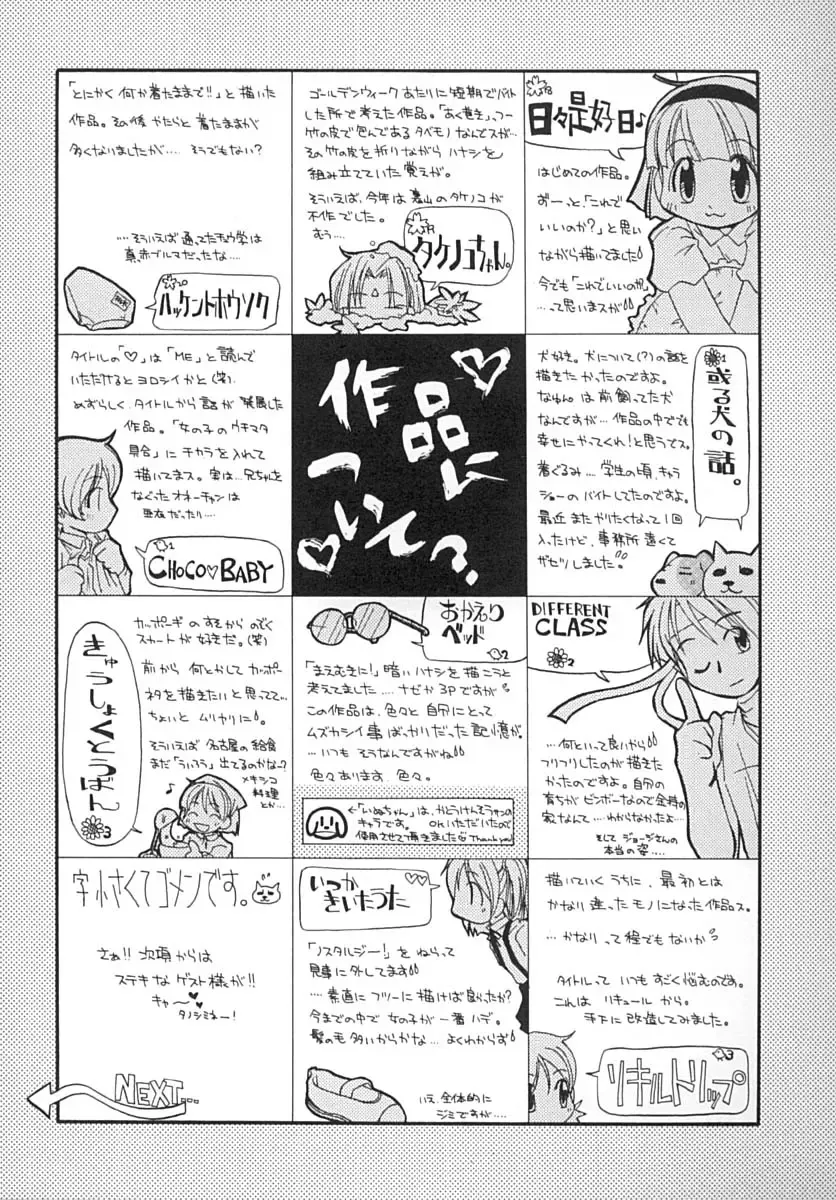 日々是好日♪
はじめての作品。
ずーっと「これで
いいのか？」と思い
ながら描いてました
今でも「これでいいのか?」
…って思いまスが
ゴールデンウィークあたりに短期でバイト
した所で考えた作品。「あく巻き」、フツー
竹の皮で包んであるタベモノなんでスが…
その竹の皮を折りながらハナシを
組み立てていた覚えが。
そういえば、今年は裏山のタケノコが
不作でした。
むぅ…
タケノコちゃん。
「とにかく何か着たままで!!」と描いた
作品。その後かたらと着たままが
多くなりましたが…. そうでもない？
….そういえば通ってたチュウ学は
真赤ブルマだったな….
ハッケントホウソク
或る犬の話。
犬好き。犬について(?)の話を
描きたかったのですよ。
なゅんは前飼ってた犬
なんですが…作品の中ででも
幸せにやってくれ！と思うでス。
着ぐるみ….学生の頃、キャラ
ショーのバイトしてたのですよ。
最近またやりたくなって1回
入ったけど、事務所遠くて
ザセツしました。
作品に
ついて？
タイトルの「♡」は「ME」と読んで
いただけるとヨロシイかと(笑).
めずらしく、タイトルから話が発展した
作品。「女の子のウチマタ
具合」にチカラを入れて
描いてまス。実は…兄ちゃんを
なぐったオネーチャンは
亜衣だったり….
CHOCO♡BABY
DIFFERENT
CLASS
….何といって良いから
フリフリしたのが描きた
かったのですよ。自分の
育ちがビンボーなので金持の
家なんて….わからなかったよ…
そして ジョージさんの
本当の姿….
おかえり
ベッド
「まえむきに！」暗いハナシを描こうと
考えてました….ナゼか3Pですが
この作品は、色々と自分にとって
ムズカシイ事ばっかりだった記憶が。
…いつもそうなんですがね
色々あります、色々。
←「いぬちゃん」は、かとうけんそうサンの
キャラです。OKいただいたので
使用させて頂きました Thank you!
きゅうしょくとうばん
カッポーギのすそからのぞく
スカートが好きだ。(笑)
前から何とかしてカッポー
ネタを描きたいと思ってて…
ちょいとムリヤリに。
そういえば名古屋の給食
まだ「ういろう」出てるのかな〜?
メキシコ
料理
とか…
描いていくうちに、最初とは
かなり違ったモノになった作品ス。
…かなりって程でもないか
タイトルっていつもすごく悩むのです。
これは リキュールから。
手下に改造してみました。
リキルトリップ
いつか
きいたうた
「ノスタルジー！」をねらって
見事に外してます
….素直にフツーに描けば良かったか?
今までの中で女の子が一番ハデ。
髪の毛多いからかな…よくわからず
いえ、全体的に
ジミですが….
字小さくてゴメンです。
さぁ!! 次項からは
ステキなゲスト様が!!
キャ〜♥
タノシミネー!
NEXT...